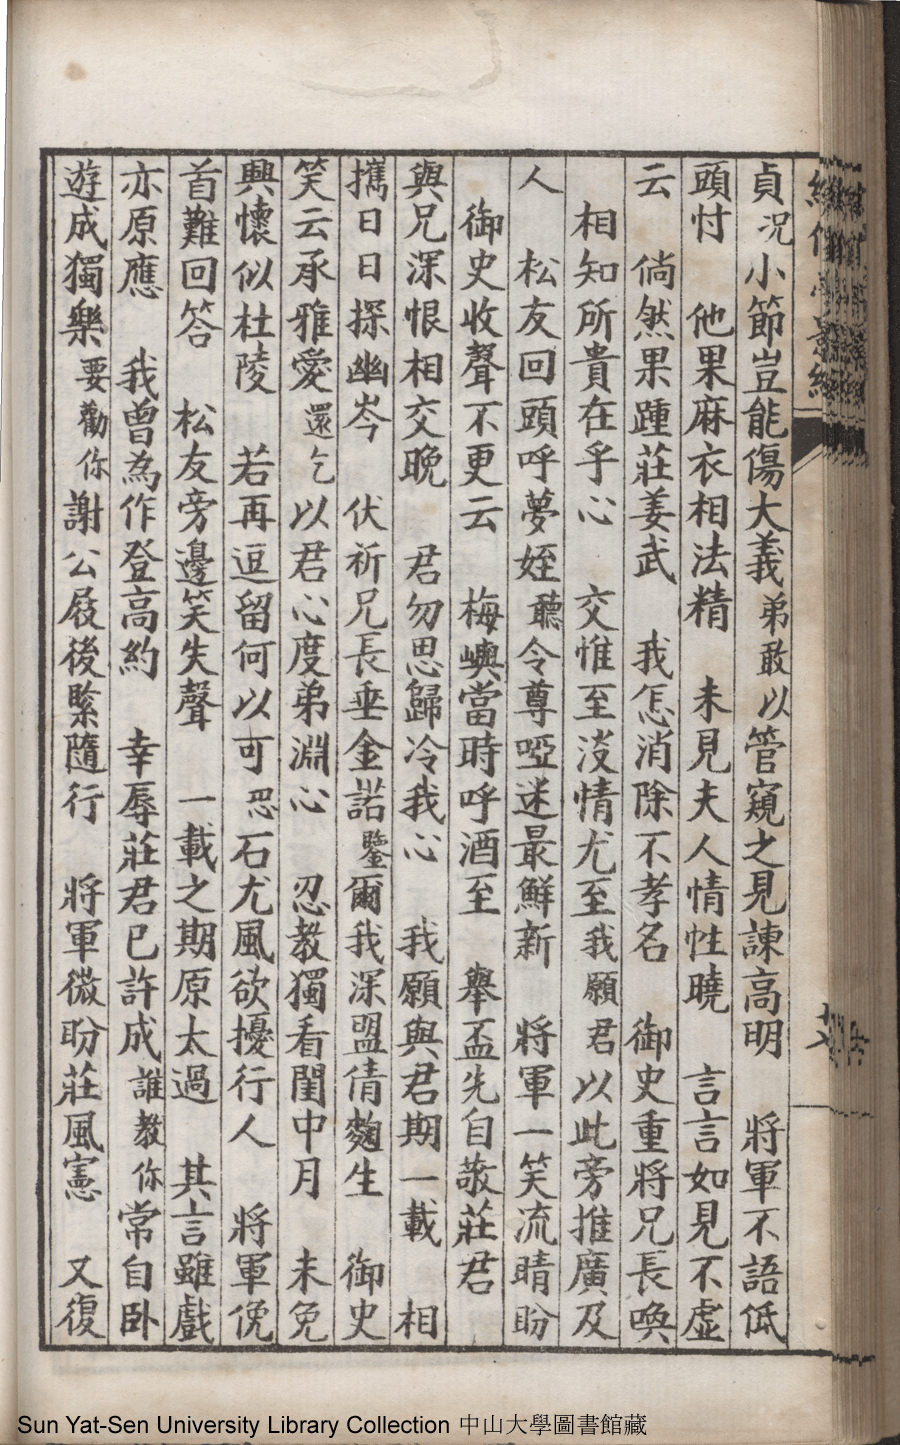 貞況小節豈能傷大義弟敢以管窺之見諫高明　將軍不語低
頭忖　他果麻衣相法精　未見夫人情性曉　言言如見不虛
云　倘然果踵莊姜武　我怎消除不孝名　御史重將兄長喚
相知所貴在乎心　交惟至淡情尤至我願君以此旁推廣及
人　松友回頭呼夢姪聽令尊啞迷最鮮新　將軍一笑流睛盼
御史收聲不更云　梅嶼當時呼酒至　舉盃先自敬莊君
與兄深恨相交晚　君勿思歸冷我心　我願與君期一載　相
攜日日探幽岑　伏祈兄長垂金諾鑒爾我深盟倩麴生　御史
笑云承雅愛還乞以君心度弟淵心　忍教獨看閨中月　未免
興懷似杜陵　若再逗留何以可恐石尤風欲擾行人　將軍俛
首難回答　松友旁邊笑失聲　一載之期原太過　其言雖戲
亦原應　我曾為作登高約　幸辱莊君已許成誰教你常自卧
遊成獨樂要勸你謝公屐後緊隨行　將軍微盼莊風憲　又復
Sun Yat-Sen University Library Collection 中山大學圖書館藏